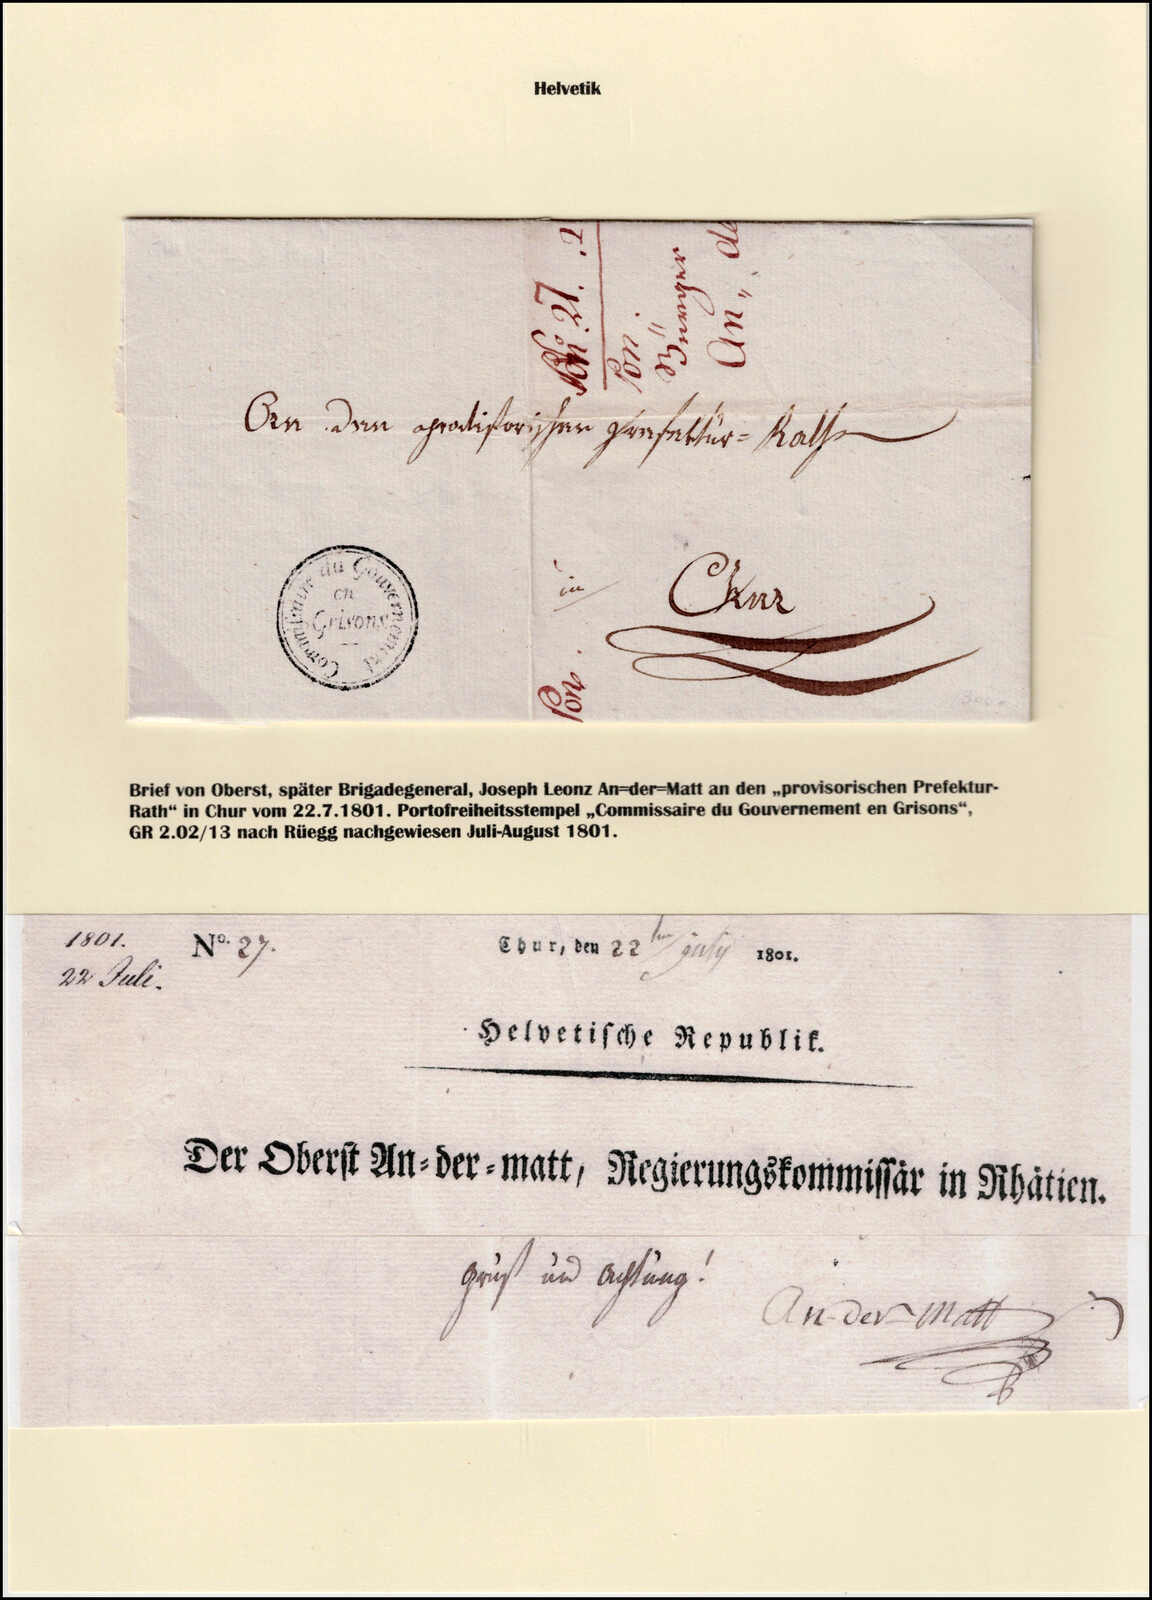 Helvetik
No. 27.
Von
Bürger
An=de
An den provisorischen Prefektur=Rath
in Chur
Commissaire du Gouvernement
en
Grisons
Von
Brief von Oberst, später Brigadegeneral, Joseph Leonz An=der=Matt an den „provisorischen Prefektur-
Rath“ in Chur vom 22.7.1801. Portofreiheitsstempel „Commissaire du Gouvernement en Grisons“,
GR 2.02/13 nach Rüegg nachgewiesen Juli-August 1801.
1801.
22 Juli.
No. 27.
Chur, den 22ten July 1801.
Helvetische Republik.
Der Oberst An=der=matt, Regierungskommissär in Rhätien.
Gruß und Achtung!
An-der-Matt